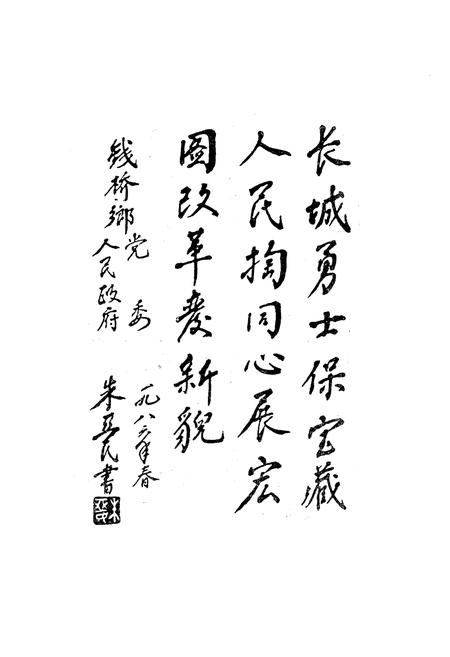 长城勇士保宝藏
人民掏同心展宏
圖改革变新貌
钱桥鄉党委
人民政府
一九八六年春
朱亚民書